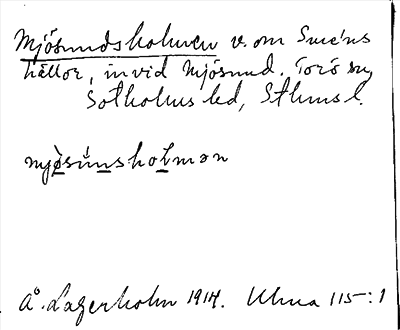 Mjösundsholmen v. om Smens
hällor, invid Mjösund. Torö sn,
Sotholms hd, Sthms l.
mjøsúnsholmən
Å. Lagerholm 1914. Uhua 115:1